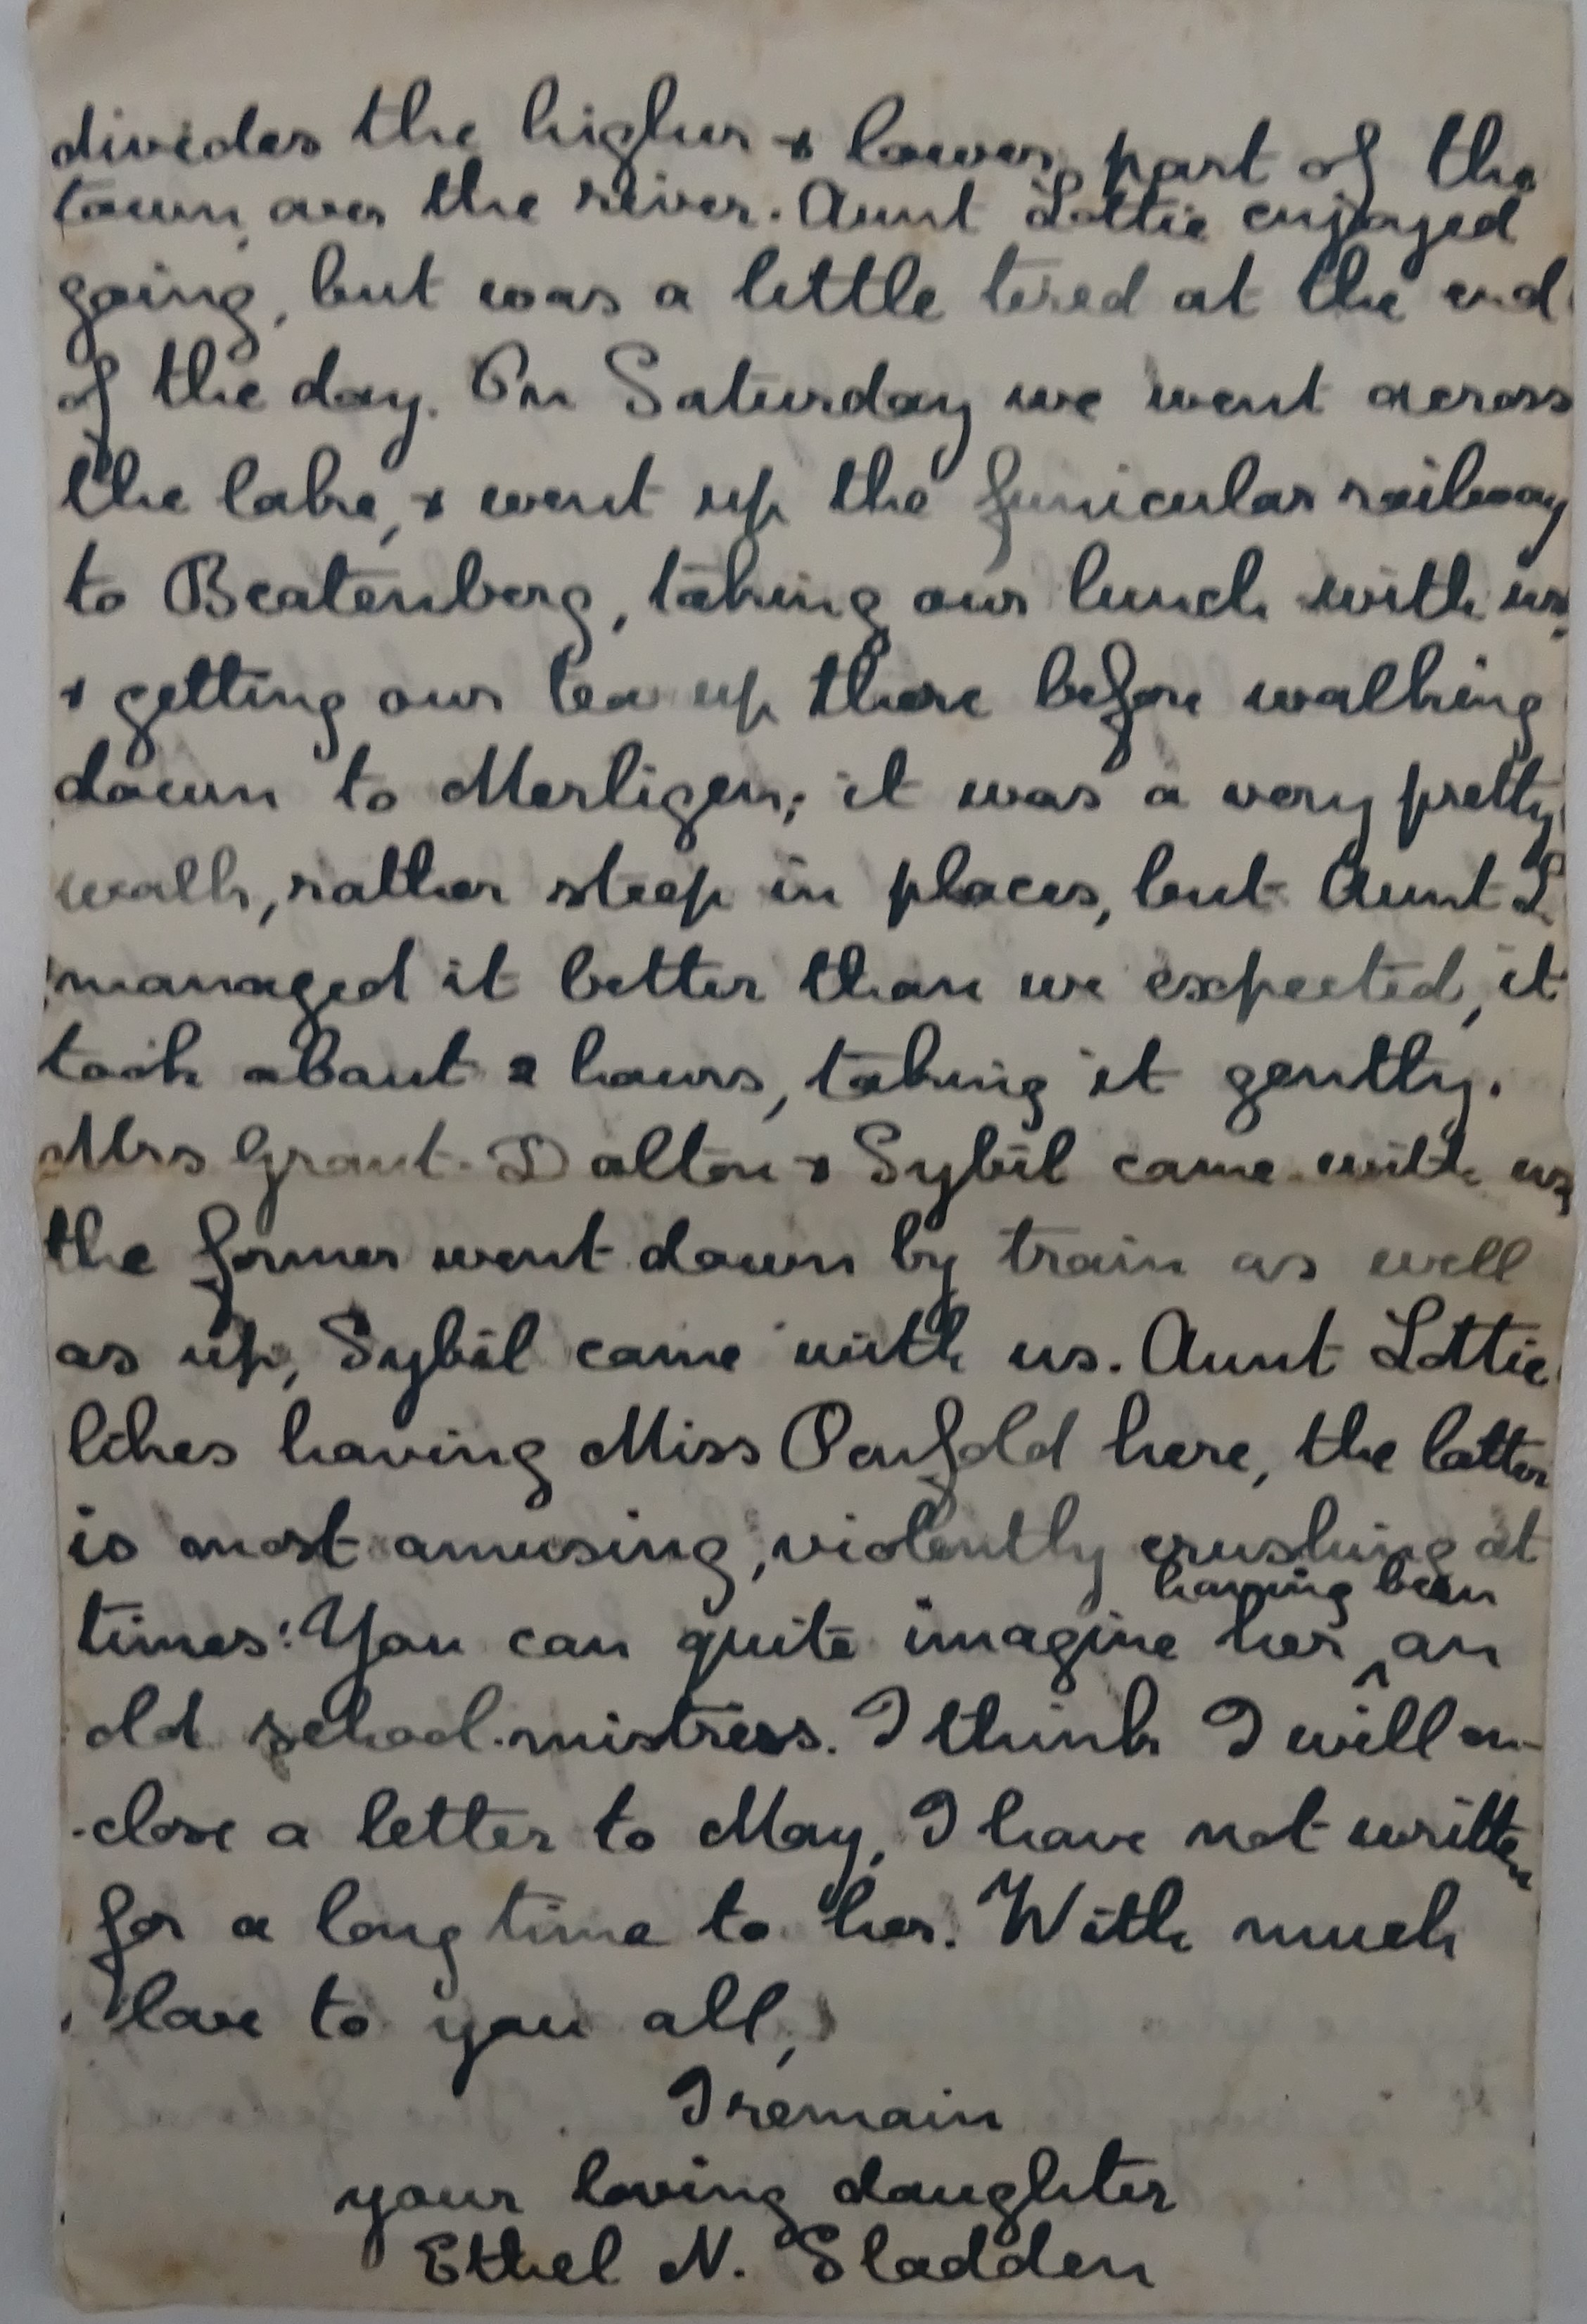 divides the higher & lower part of the
town, over the river. Aunt Lottie enjoyed
going, but was a little tired at the end
of the day. On Saturday we went across
the lake, & went up the funicular railway
to Beatenberg, taking our lunch with us,
& getting our tea up there before walking
down to Merligen; it was a very pretty
walk, rather steep in places, but Aunt L
managed it better than we expected, it
took about 2 hours, taking it gently.
Mrs Grant-Dalton & Sybil came with us,
the former went down by train as well
as up, Sybil came with us. Aunt Lottie
likes having Miss Penfold here, the latter
is most amusing, violently crushing at
times: You can quite imagine her ^ having been an
old school-mistress. I think I will en-
-close a letter to May, I have not written
for a long time to her. With much
love to you all,
I remain
your loving daughter
Ethel N. Sladden